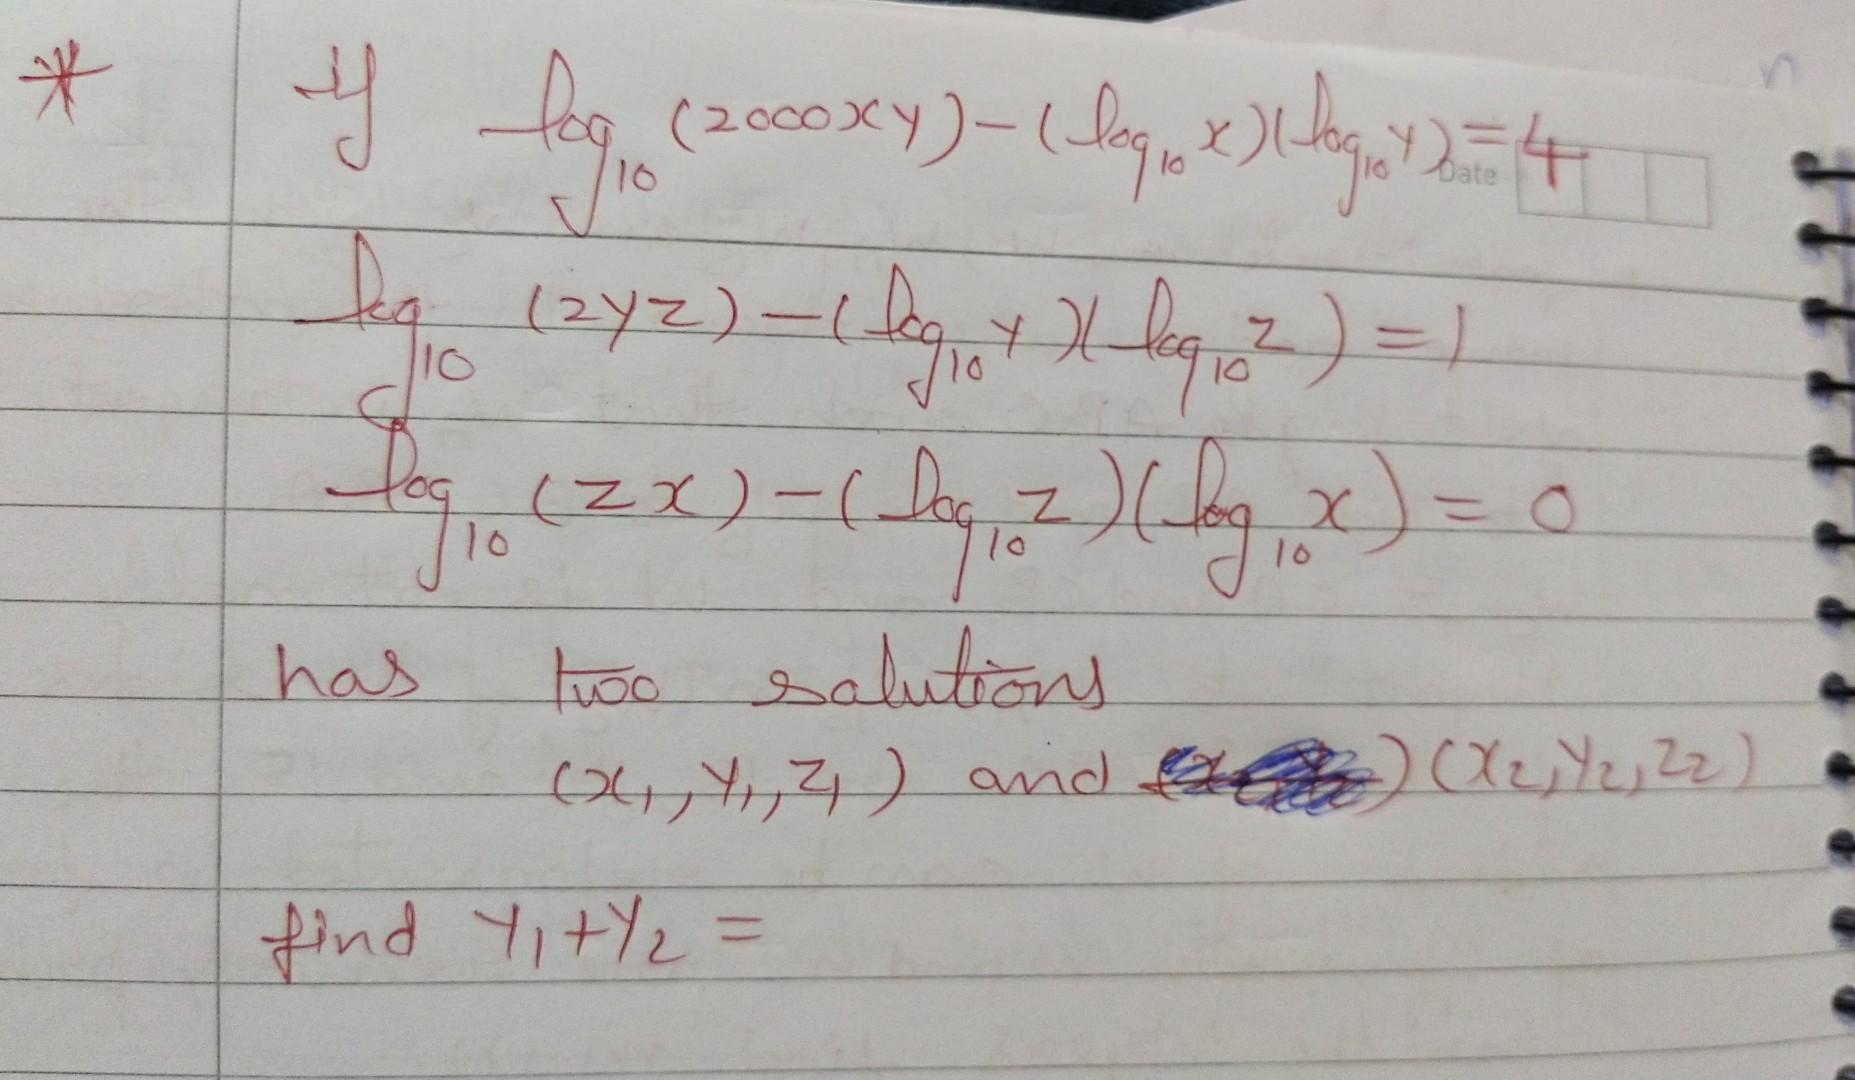 * If log₁₀ (2000xy) - (log₁₀ x)(log₁₀ y) = 4
Date
log₁₀ (2yz) - (log₁₀ y)(log₁₀ z) = 1
log₁₀ (zx) - (log₁₀ z)(log₁₀ x) = 0
has two solutions
(x₁, y₁, z₁) and ) (x₂, y₂, z₂)
find y₁ + y₂ =